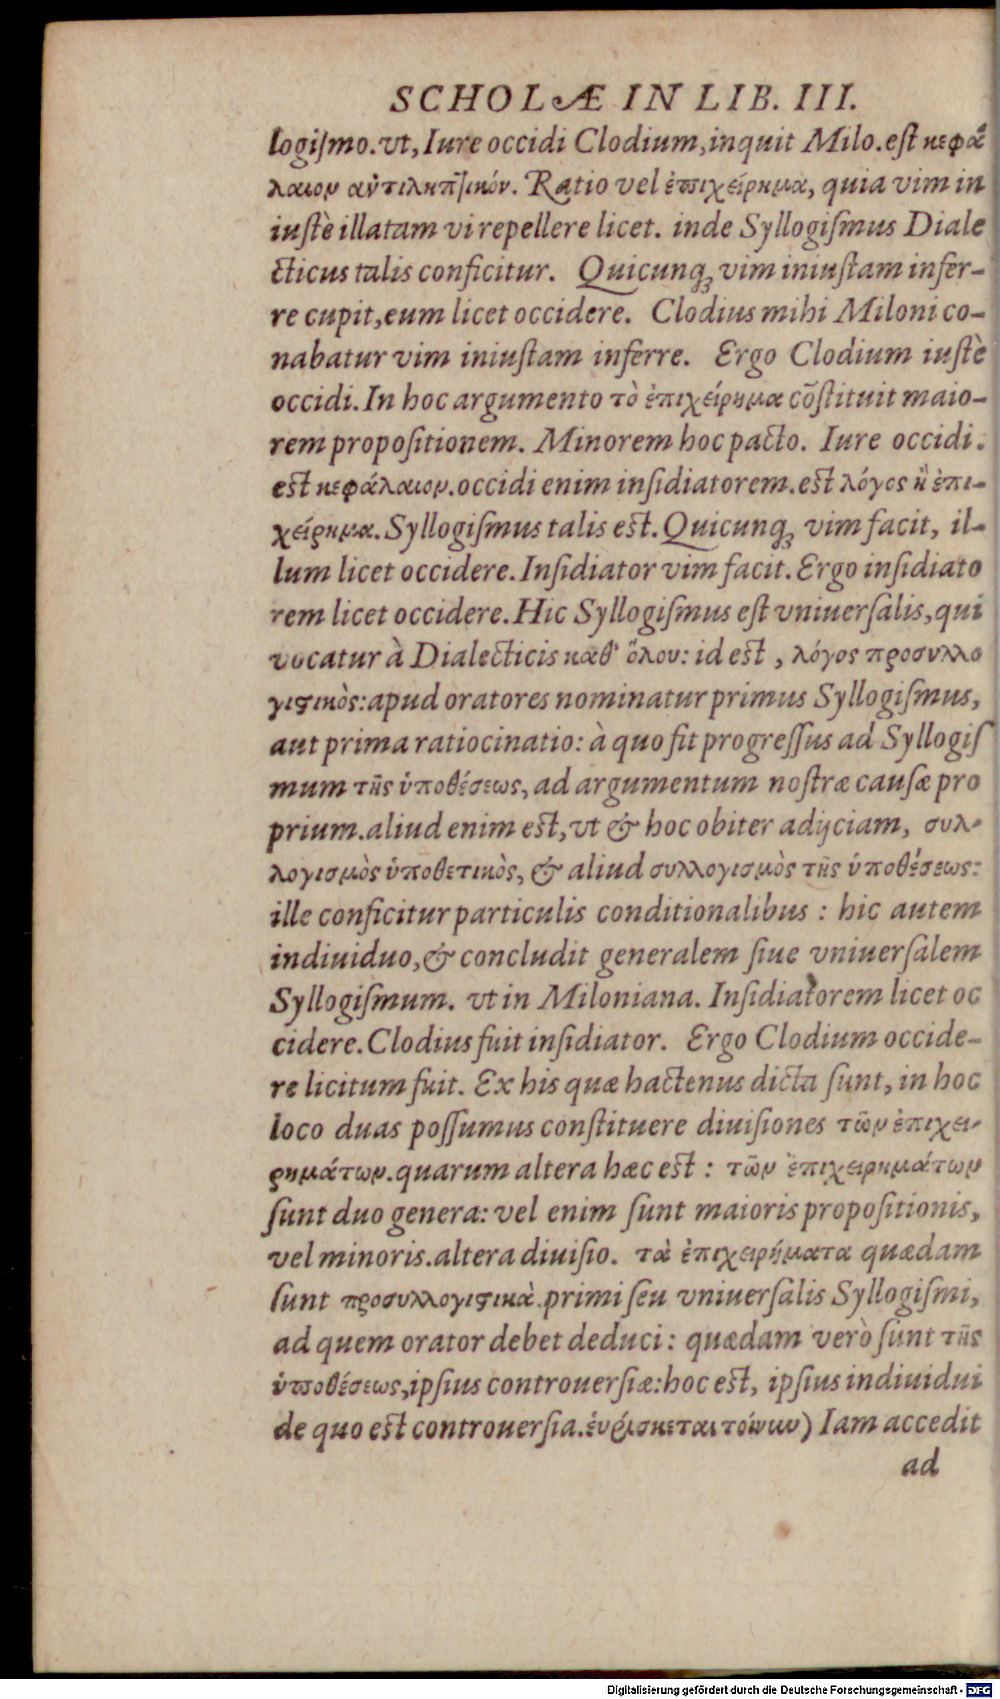 SCHOLÆ IN LIB. III.
logiſmo.vt, Iure occidi Clodium, inquit Milo.eſt κεφά
λαιον ἀντιληπτικόν. Ratio vel ἐπιχείρημα, quia vim in
iuſtè illatam vi repellere licet. inde Syllogiſmus Diale
cticus talis conficitur. Quicunqꝫ vim iniuſtam infer-
re cupit, eum licet occidere. Clodius mihi Miloni co-
nabatur vim iniuſtam inferre. Ergo Clodium iuſtè
occidi. In hoc argumento τὸ ἐπιχείρημα cõſtituit maio-
rem propoſitionem. Minorem hoc pacto. Iure occidi.
eſt κεφάλαιον. occidi enim inſidiatorem.eſt λόγος ἢ ἐπι-
χείρημα. Syllogiſmus talis eſt. Quicunqꝫ vim facit, il-
lum licet occidere. Inſidiator vim facit. Ergo inſidiato
rem licet occidere. Hic Syllogiſmus eſt vniuerſalis, qui
vocatur à Dialecticis καθ' ὅλου: id eſt, λόγος προσυλλο
γιϛικὸς: apud oratores nominatur primus Syllogiſmus,
aut prima ratiocinatio: à quo fit progreſſus ad Syllogiſ
mum τῆς ὑποθέσεως, ad argumentum noſtræ cauſæ pro
prium. aliud enim eſt, vt & hoc obiter adijciam, συλ-
λογισμὸς ὑποθετικὸς, & aliud συλλογισμὸς τῆς ὑποθέσεως:
ille conficitur particulis conditionalibus: hic autem
indiuiduo, & concludit generalem ſiue vniuerſalem
Syllogiſmum. vt in Miloniana. Inſidiatorem licet oc
cidere. Clodius fuit inſidiator. Ergo Clodium occide-
re licitum fuit. Ex his quæ hactenus dicta ſunt, in hoc
loco duas poſſumus conſtituere diuiſiones τῶν ἐπιχει-
ρημάτων. quarum altera hæc eſt: τῶν ἐπιχειρημάτων
ſunt duo genera: vel enim ſunt maioris propoſitionis,
vel minoris. altera diuiſio. τὰ ἐπιχειρήματα quædam
ſunt προσυλλογιϛικὰ primi ſeu vniuerſalis Syllogiſmi,
ad quem orator debet deduci: quædam verò ſunt τῆς
ὑποθέσεως, ipſius controuerſiæ: hoc eſt, ipſius indiuidui
de quo eſt controuerſia. ἑυρίσκεται τοίνυν) Iam accedit
ad
Digitalisierung gefördert durch die Deutsche Forschungsgemeinschaft - DFG